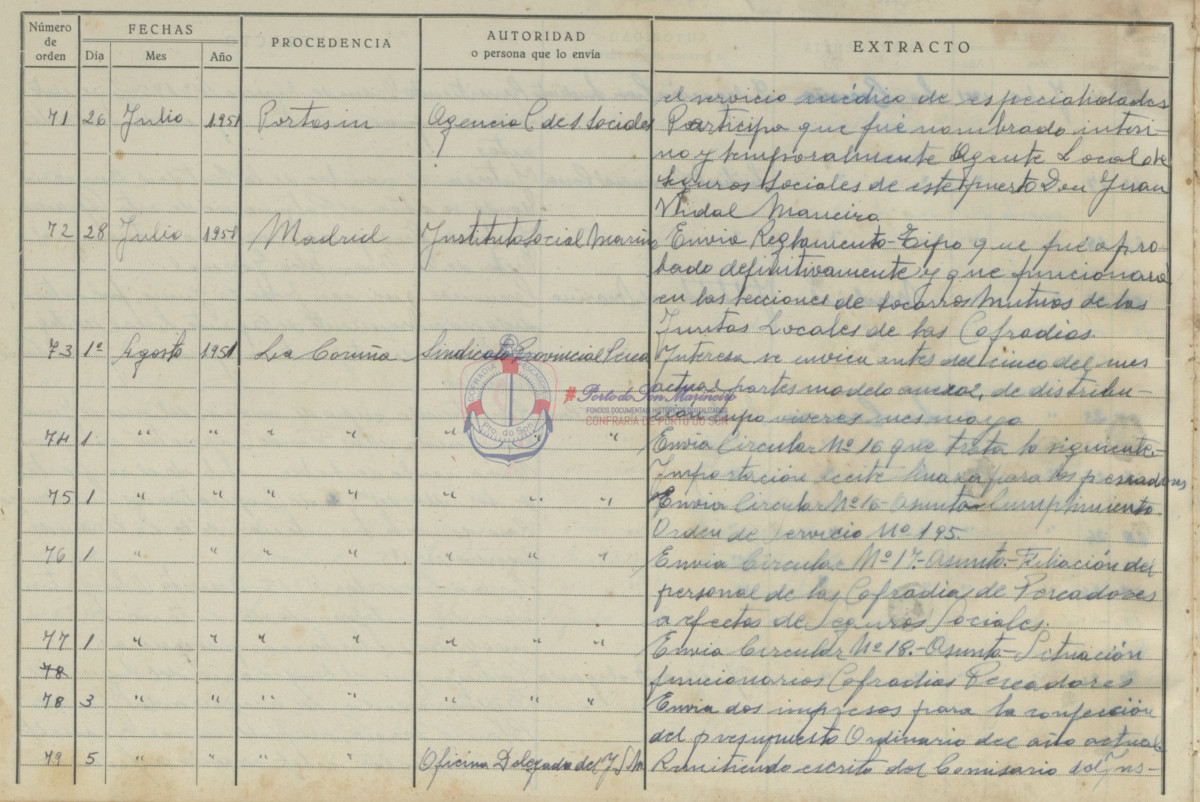 Número de orden FECHAS Día Mes Año PROCEDENCIA AUTORIDAD o persona que lo envía EXTRACTO
el servicio médico de especialidades
71 26 Julio 1951 Portosin Agencia C de S Sociales Participa que fué nombrado interi-
no y temporalmente Agente Local de
Seguros Sociales de este puerto Don Juan
Vidal Maneiro
72 28 Julio 1951 Madrid Instituto Social Marina Envia Reglamento-Tipo que fué apro-
bado definitivamente y que funcionara
en las secciones de Socorros Mutuos de las
Juntas Locales de las Cofradias.
73 1º Agosto 1951 La Coruña Sindicato Provincial Pesca Interesa se envien antes del cinco del mes
actual partes modelo anexo 2, de distribu-
cion cupo viveres mes mayo
74 1 " " " " " " " Envia Circular Nº 16 que trata lo siguiente-
Importación aceite para los pescadores
75 1 " " " " " " " Envia Circular Nº 16- Asunto- Cumplimiento
Orden de servicio Nº 195.
76 1 " " " " " " " Envia Circular Nº 17.- Asunto.- Filiación del
personal de las Cofradias de Pescadores
a efectos de Seguros Sociales.
77 1 " " " " " " " Envia Circular Nº 18.- Asunto.- Situación
78 funcionarios Cofradias Pescadores
78 3 " " " " " " " Envia dos impresos para la confección
del presupuesto Ordinario del año actual
79 5 " " " " Oficina Delegada del I S M Remitiendo escrito del Comisario del Ins-
COFRADIA PESCADORES
Pto. do Son
#Porto do Son Marineiro
FONDOS DOCUMENTAIS HISTÓRICOS DIXITALIZADOS
CONFRARÍA DE PORTO DO SON